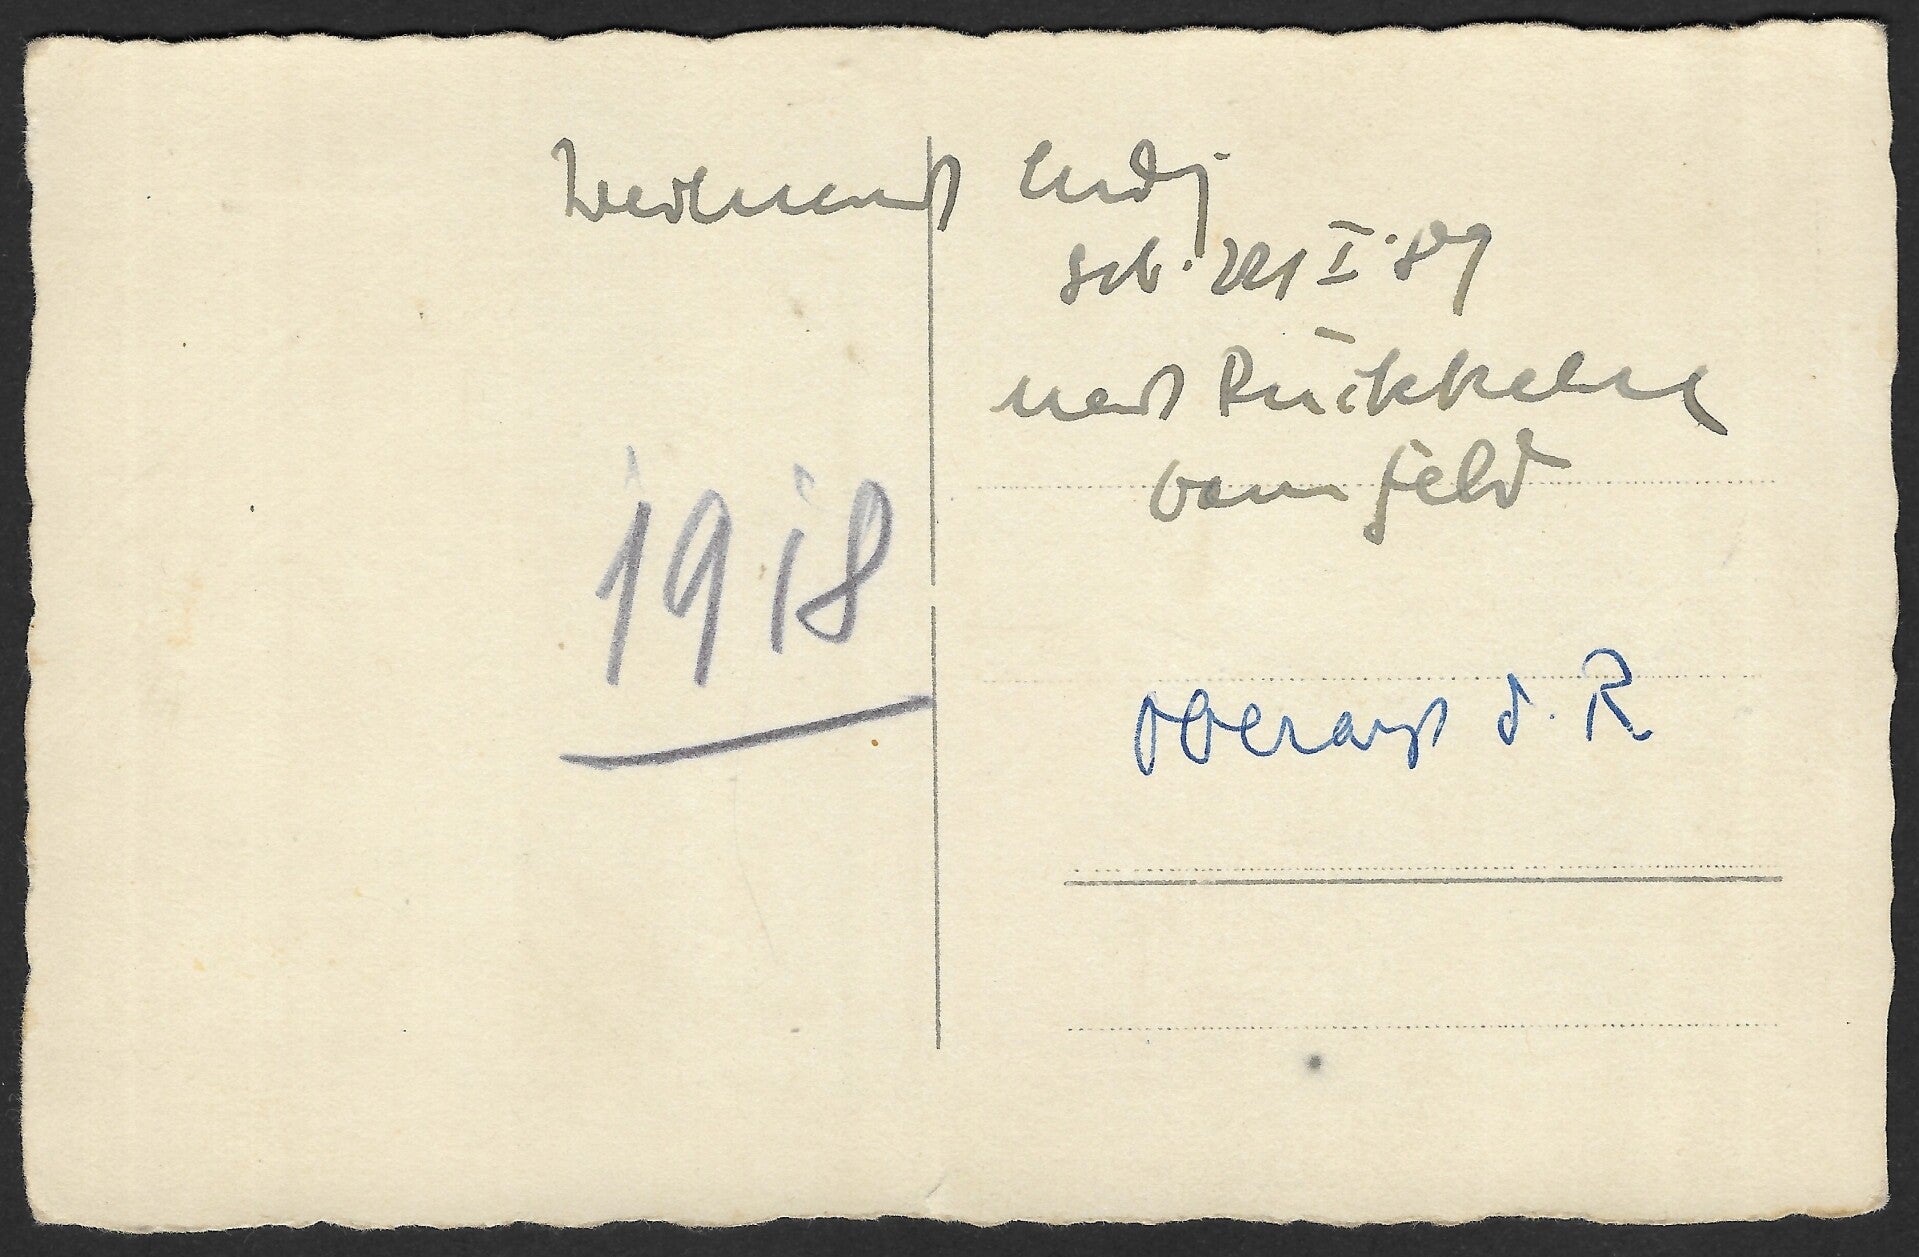 Ludj
geb. 221 I. 89
nach Rückkehr
vom Feld
1918
Oberarzt d. R